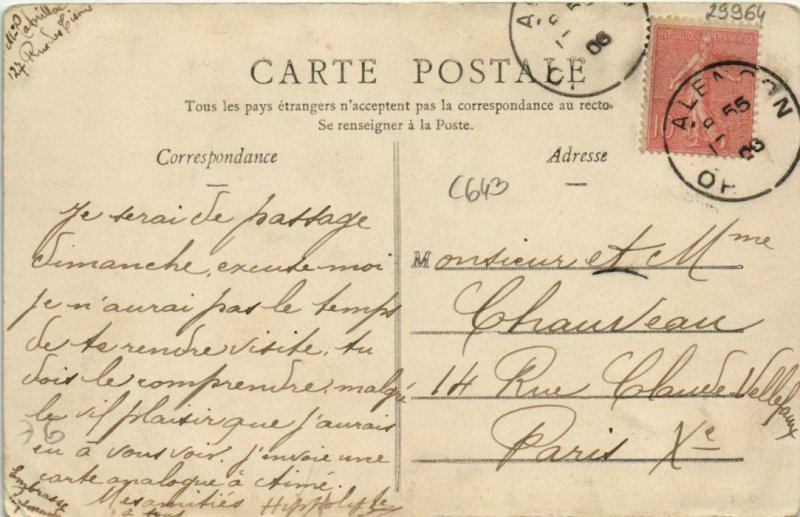 29964
CARTE POSTALE
Tous les pays étrangers n'acceptent pas la correspondance au recto
Se renseigner à la Poste.
Correspondance
Adresse
RÉPUBLIQUE FRANÇAISE
10
ALENÇON
55
06
OR
C643
Je serai de passage
dimanche, excuse-moi
je n'aurai pas le temps
de te rendre visite. tu
dois le comprendre, malgré
le vif plaisir que j'aurais
eu à vous voir. J'envoie une
carte analogue à Aimé.
Mes amitiés Hippolyte
à tous
Embrasse
76
Monsieur et Mme
Chauveau
14 Rue Claude Vellefaux
Paris Xe
127 Rue